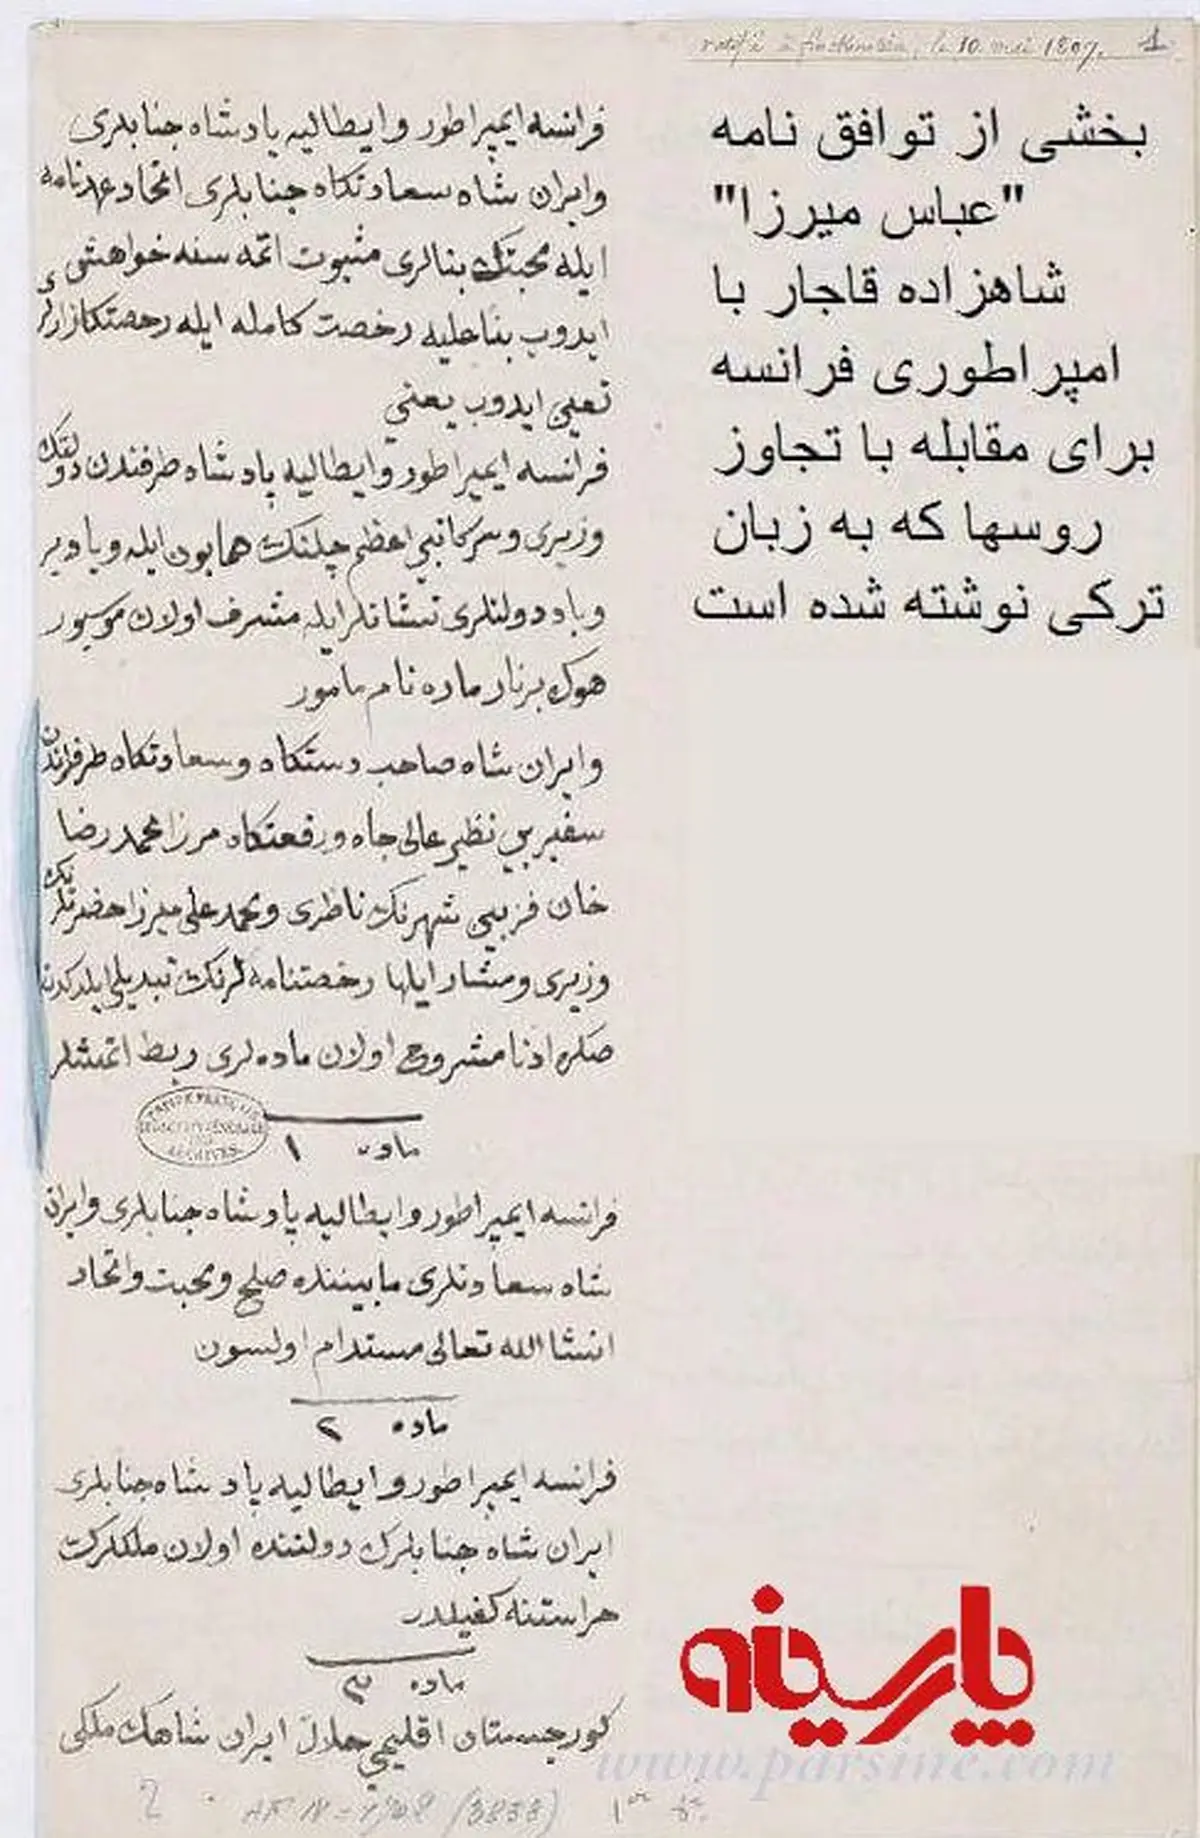 ratifié à Finckenstein, le 10 mai 1807. 1
بخشی از توافق نامه
"عباس میرزا"
شاهزاده قاجار با
امپراطوری فرانسه
برای مقابله با تجاوز
روسها که به زبان
ترکی نوشته شده است
فرانسه ایمپراطور وایطالیه پادشاه جنابلری
وایران شاه سعادتکاه جنابلری اتحاد عهدنامه
ایله محبتک بنالری مثبوت اتمه سنه خواهشی
ایدوب بناعلیه رخصت کامله ایله رخصتکارلری
تعیی ایدوب یعنی
فرانسه ایمپراطور وایطالیه پادشاه طرفندن دولتک
وزیری وسرکاتبی اعظم همایون ایله وبادیر
وباد دولتلری نشانلر ایله مشرف اولان موسیور
هوک برنار ماره نام مامور
وایران شاه صاحب دستکاه وسعادتکاه طرفلرندن
سفیر بی نظیر عالی جاه ورفعتکاه مرزا محمد رضا
خان قزبیی شهرنک ناظری ومحمد علی میرزا حضرتلرنک
وزیری ومشار ایلها رخصتنامه لرنک تبدیلی
صکره ادنا مشروح اولان ماده لری ربط اتمشلر
ماده ۱
ARCHIVES
فرانسه ایمپراطور وایطالیه پادشاه جنابلری وایران
شاه سعادتلری مابیننده صلح ومحبت واتحاد
انشا الله تعالی مستدام اولسون
ماده ۲
فرانسه ایمپراطور وایطالیه پادشاه جنابلری
ایران شاه جنابلرک دولتنده اولان ملکلرک
هراستنه کفیلدر
ماده ۳
کورجستان اقلیمی حلال ایران شاهک ملکی
پارسینه
www.parsine.com
2 AF IV - 1708 (3838) 1